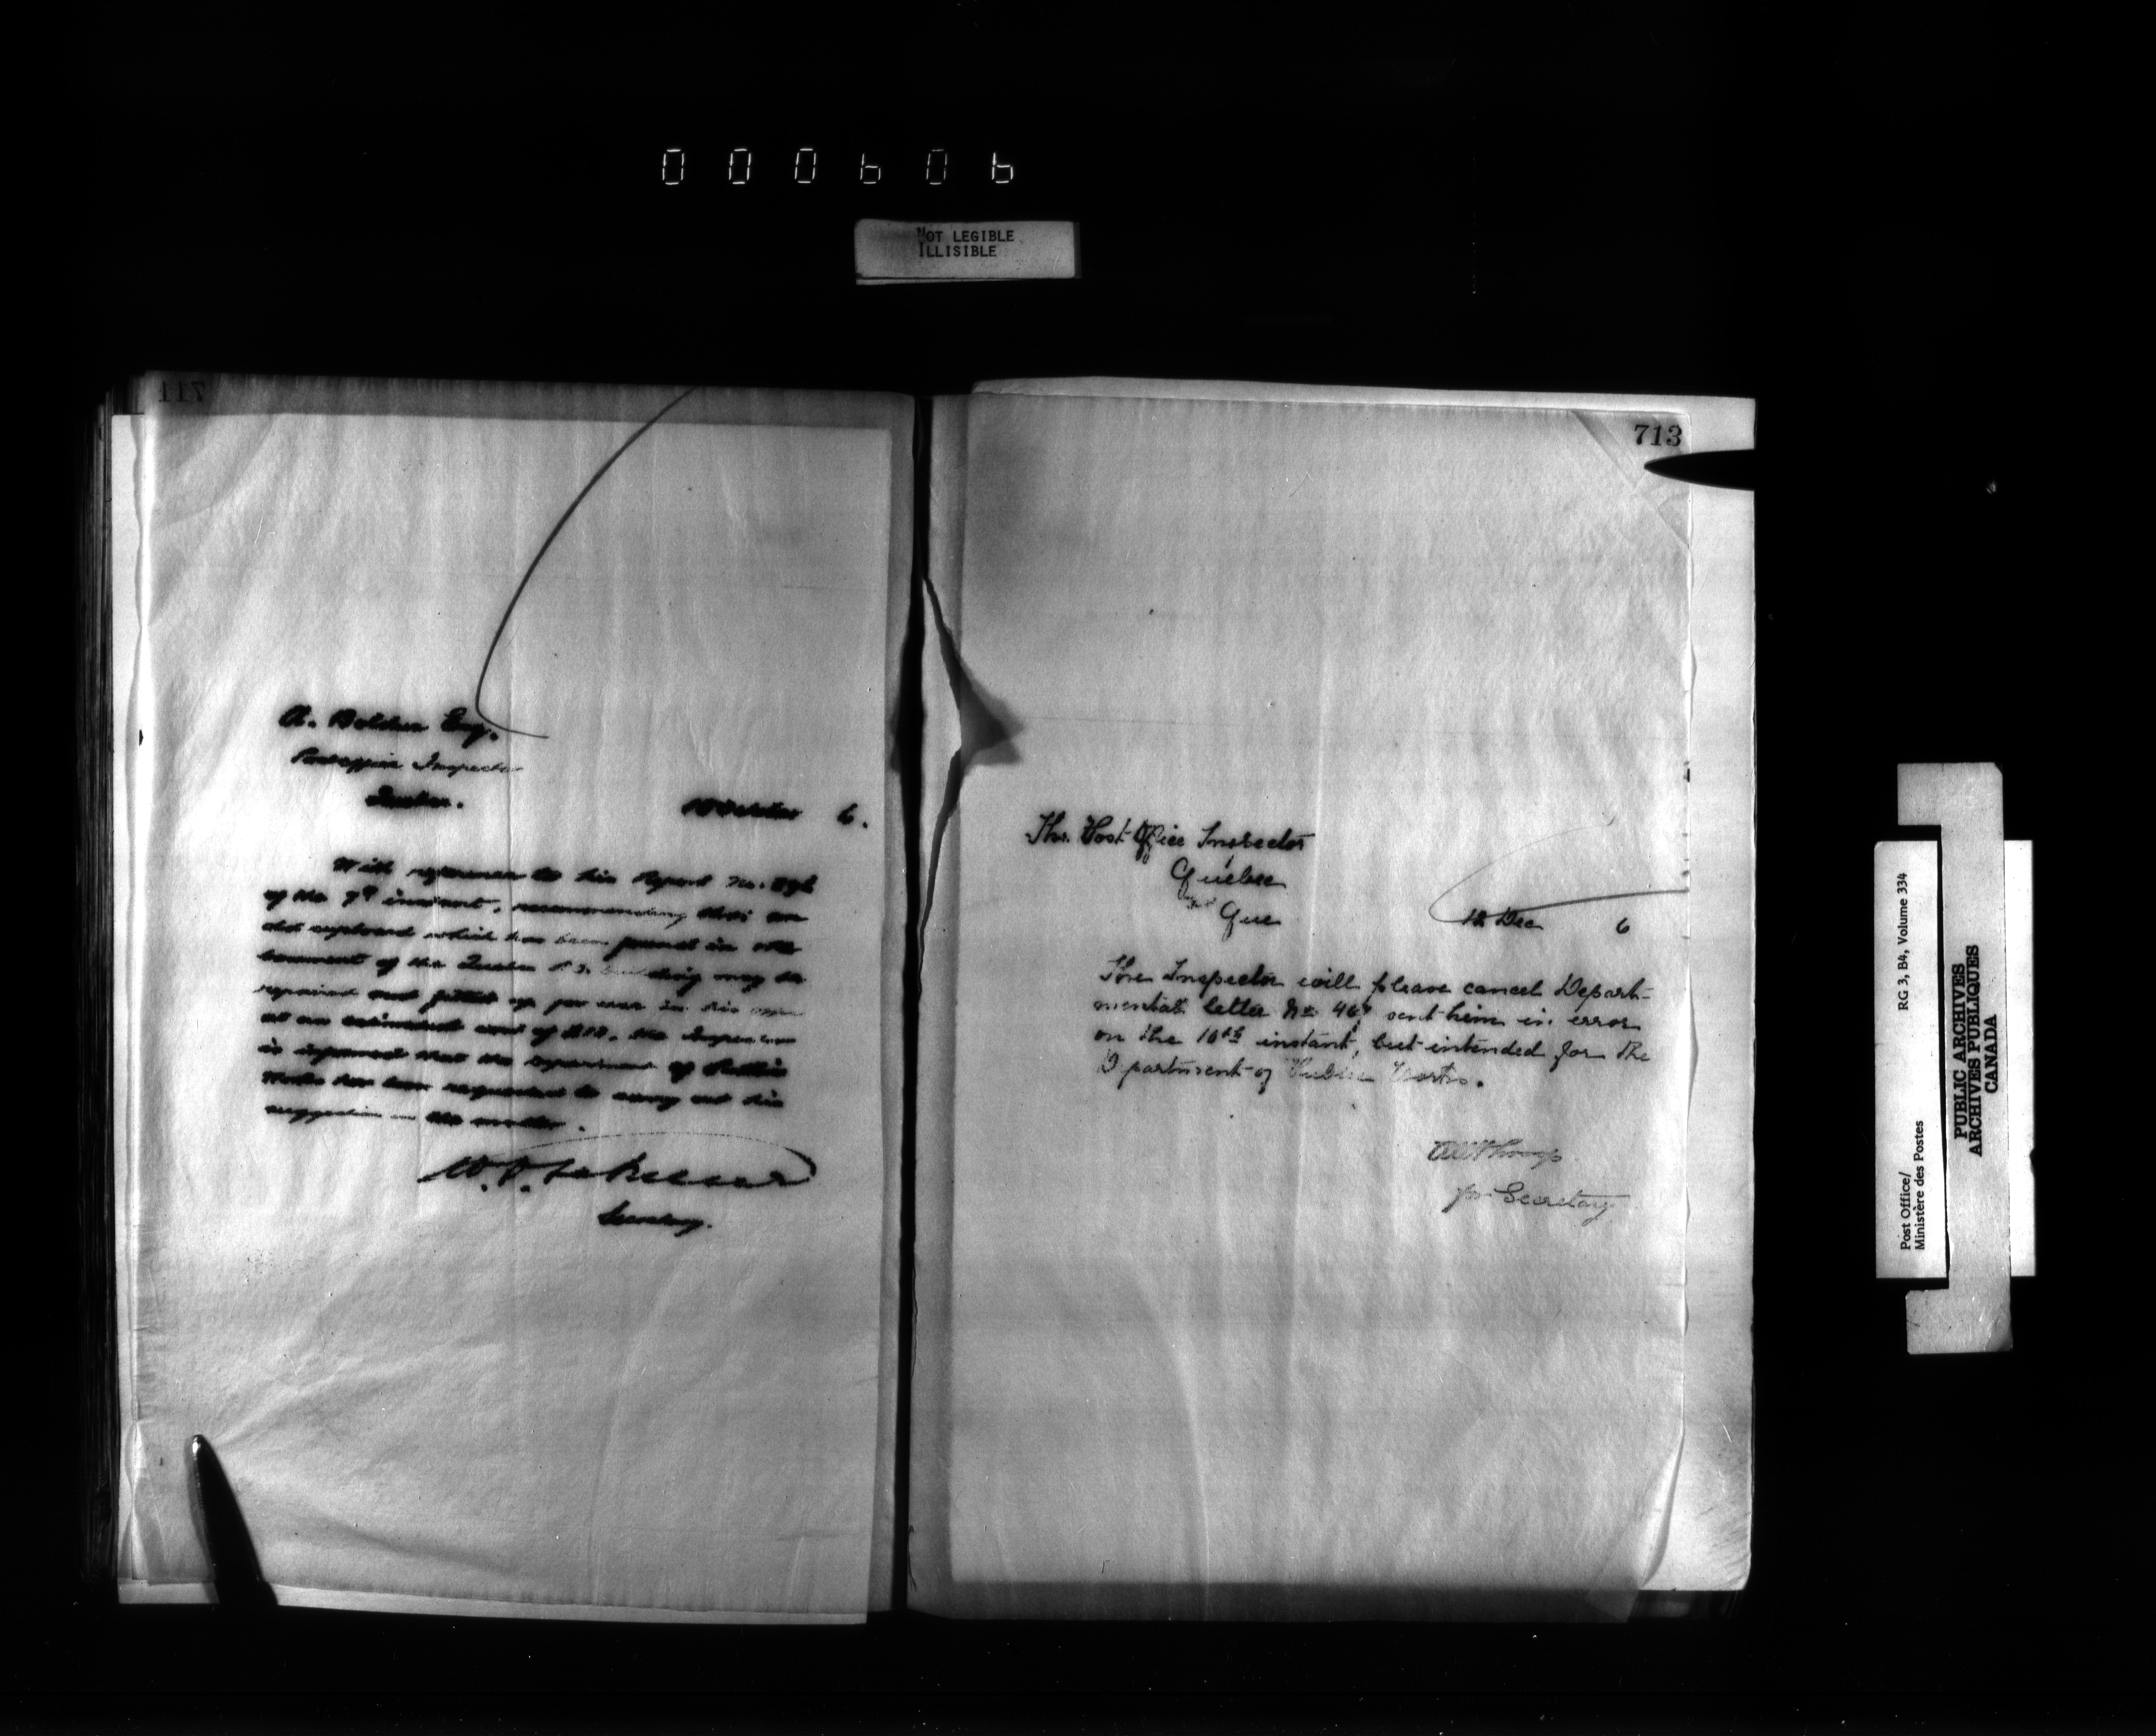 000606
NOT LEGIBLE
ILLISIBLE
711
A. Bolduc Esq.
Postoffice Inspector
Quebec.
October 6.
With reference to his report No.
of the 7th instant, recommending that an
old cupboard which has been found in the
basement of the Quebec P.O. building may be
repaired and fitted up for use in his office
at an estimated cost of $10. the Inspector
is informed that the Department of Public
Works has been requested to carry out his
suggestion in the matter.
Secretary.
713
The Post Office Inspector
Quebec
Que
12 Dec 6
The Inspector will please cancel Depart-
mental letter No 467 sent him in error
on the 10th instant, but intended for the
Department of Public Works.
for Secretary
Post Office/
Ministère des Postes
RG 3, B4, Volume 334
PUBLIC ARCHIVES
ARCHIVES PUBLIQUES
CANADA